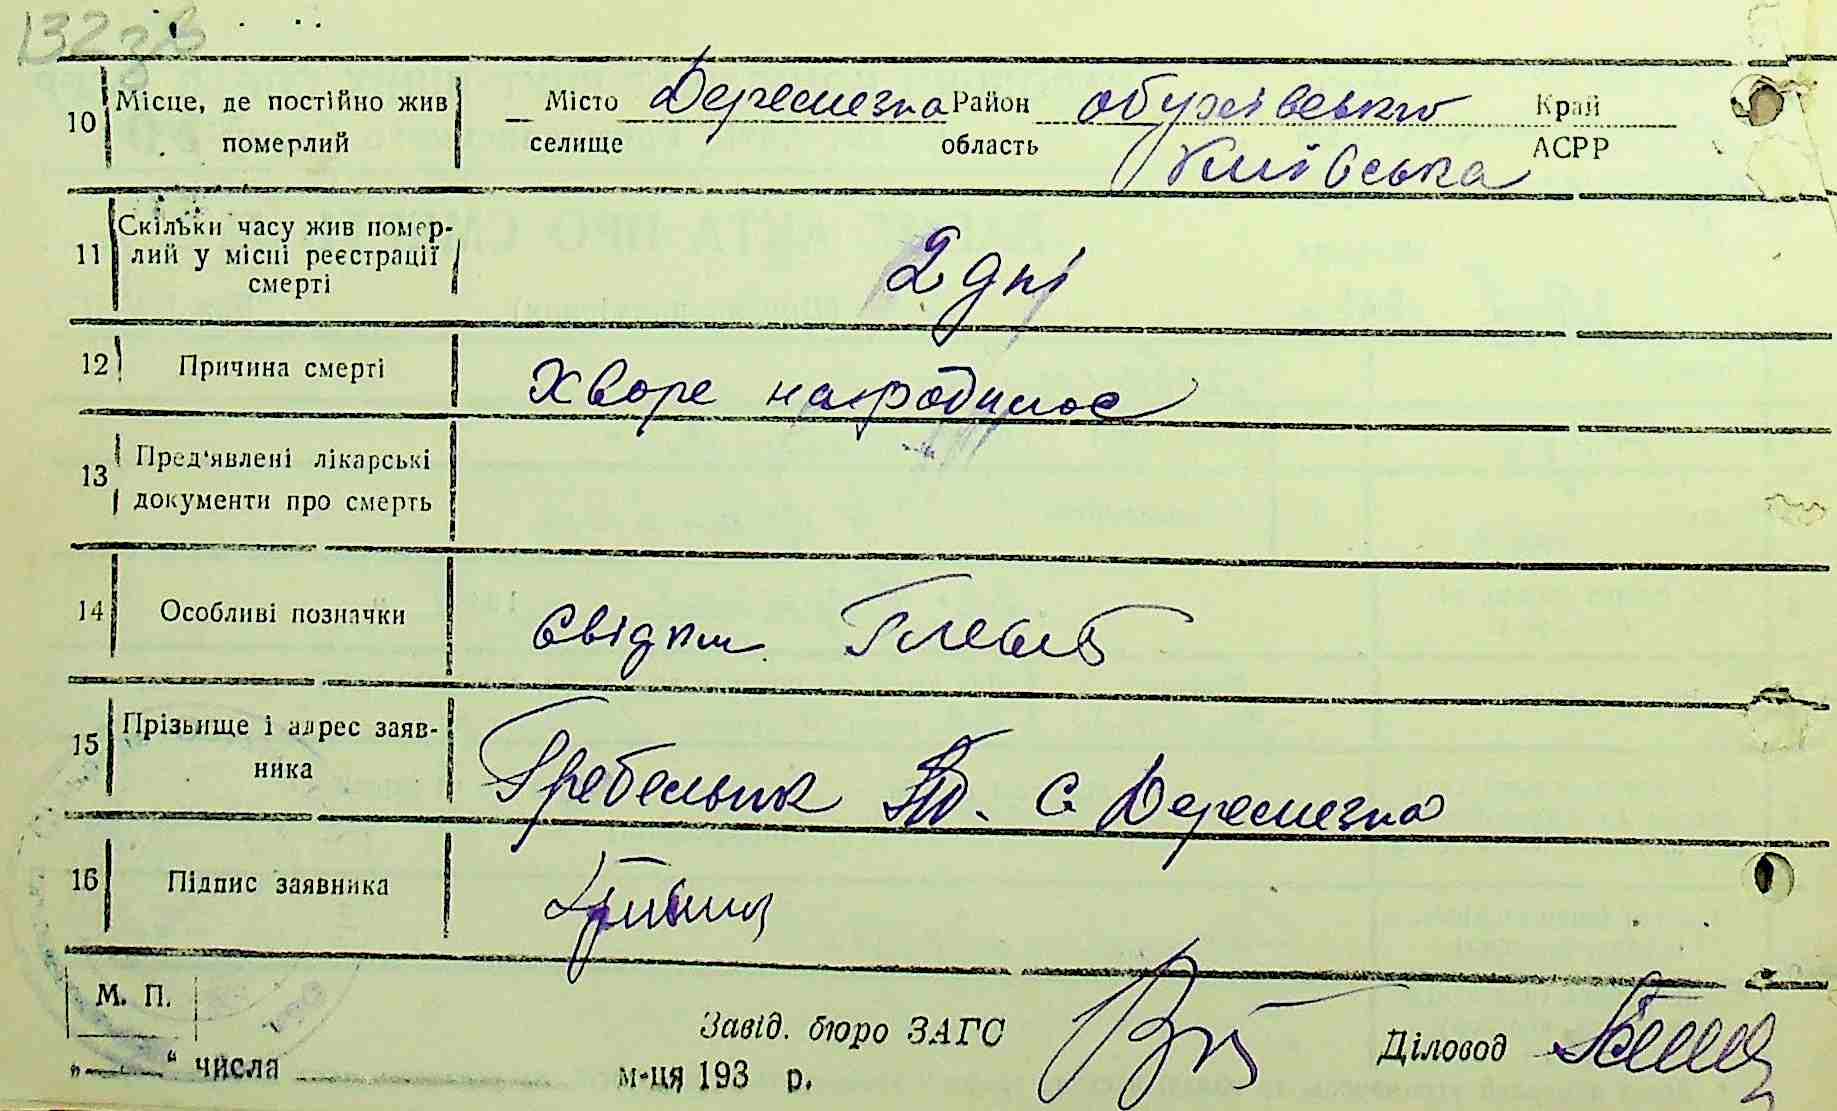 132зв
10 Місце, де постійно жив Місто Деремезна Район обухівського Край
померлий селище область Київська АСРР
11 Скільки часу жив помер-
лий у місці реєстрації 2 дні
смерті
12 Причина смерті хворе народилос
13 Пред'явлені лікарські
документи про смерть
14 Особливі позначки свідки
15 Прізьвище і адрес заяв- Гребельник с Деремезна
ника
16 Підпис заявника
М. П.
Завід. бюро ЗАГС Діловод
„ “ числа м-ця 193 р.